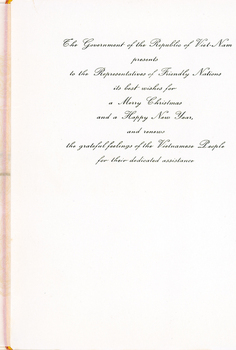 The Government of the Republic of Viet-Nam
presents
to the Representatives of Friendly Nations
its best wishes for
a Merry Christmas
and a Happy New Year,
and renews
the grateful feelings of the Vietnamese People
for their dedicated assistance